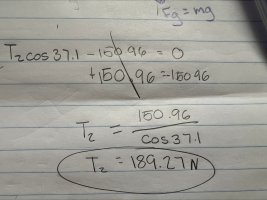 Fg = mg
T₂cos37.1 - 150.96 = 0
+150.96 = 150.96
T₂ = 150.96 / cos37.1
T₂ = 189.27N